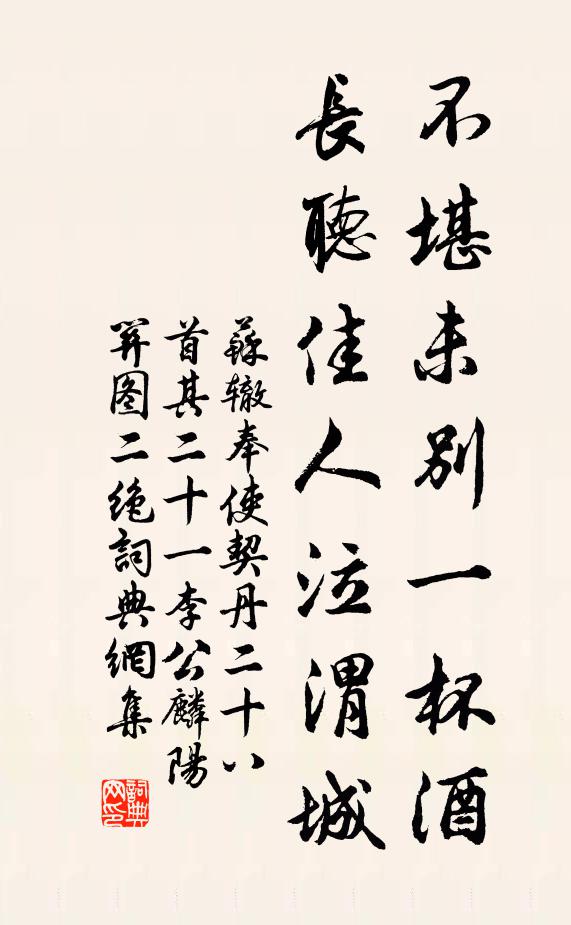 不堪未別一杯酒
長聽佳人泣渭城
蘇辙奉使契丹二十八
首其二十一李公麟陽
關图二绝詞典網集
詞典网印